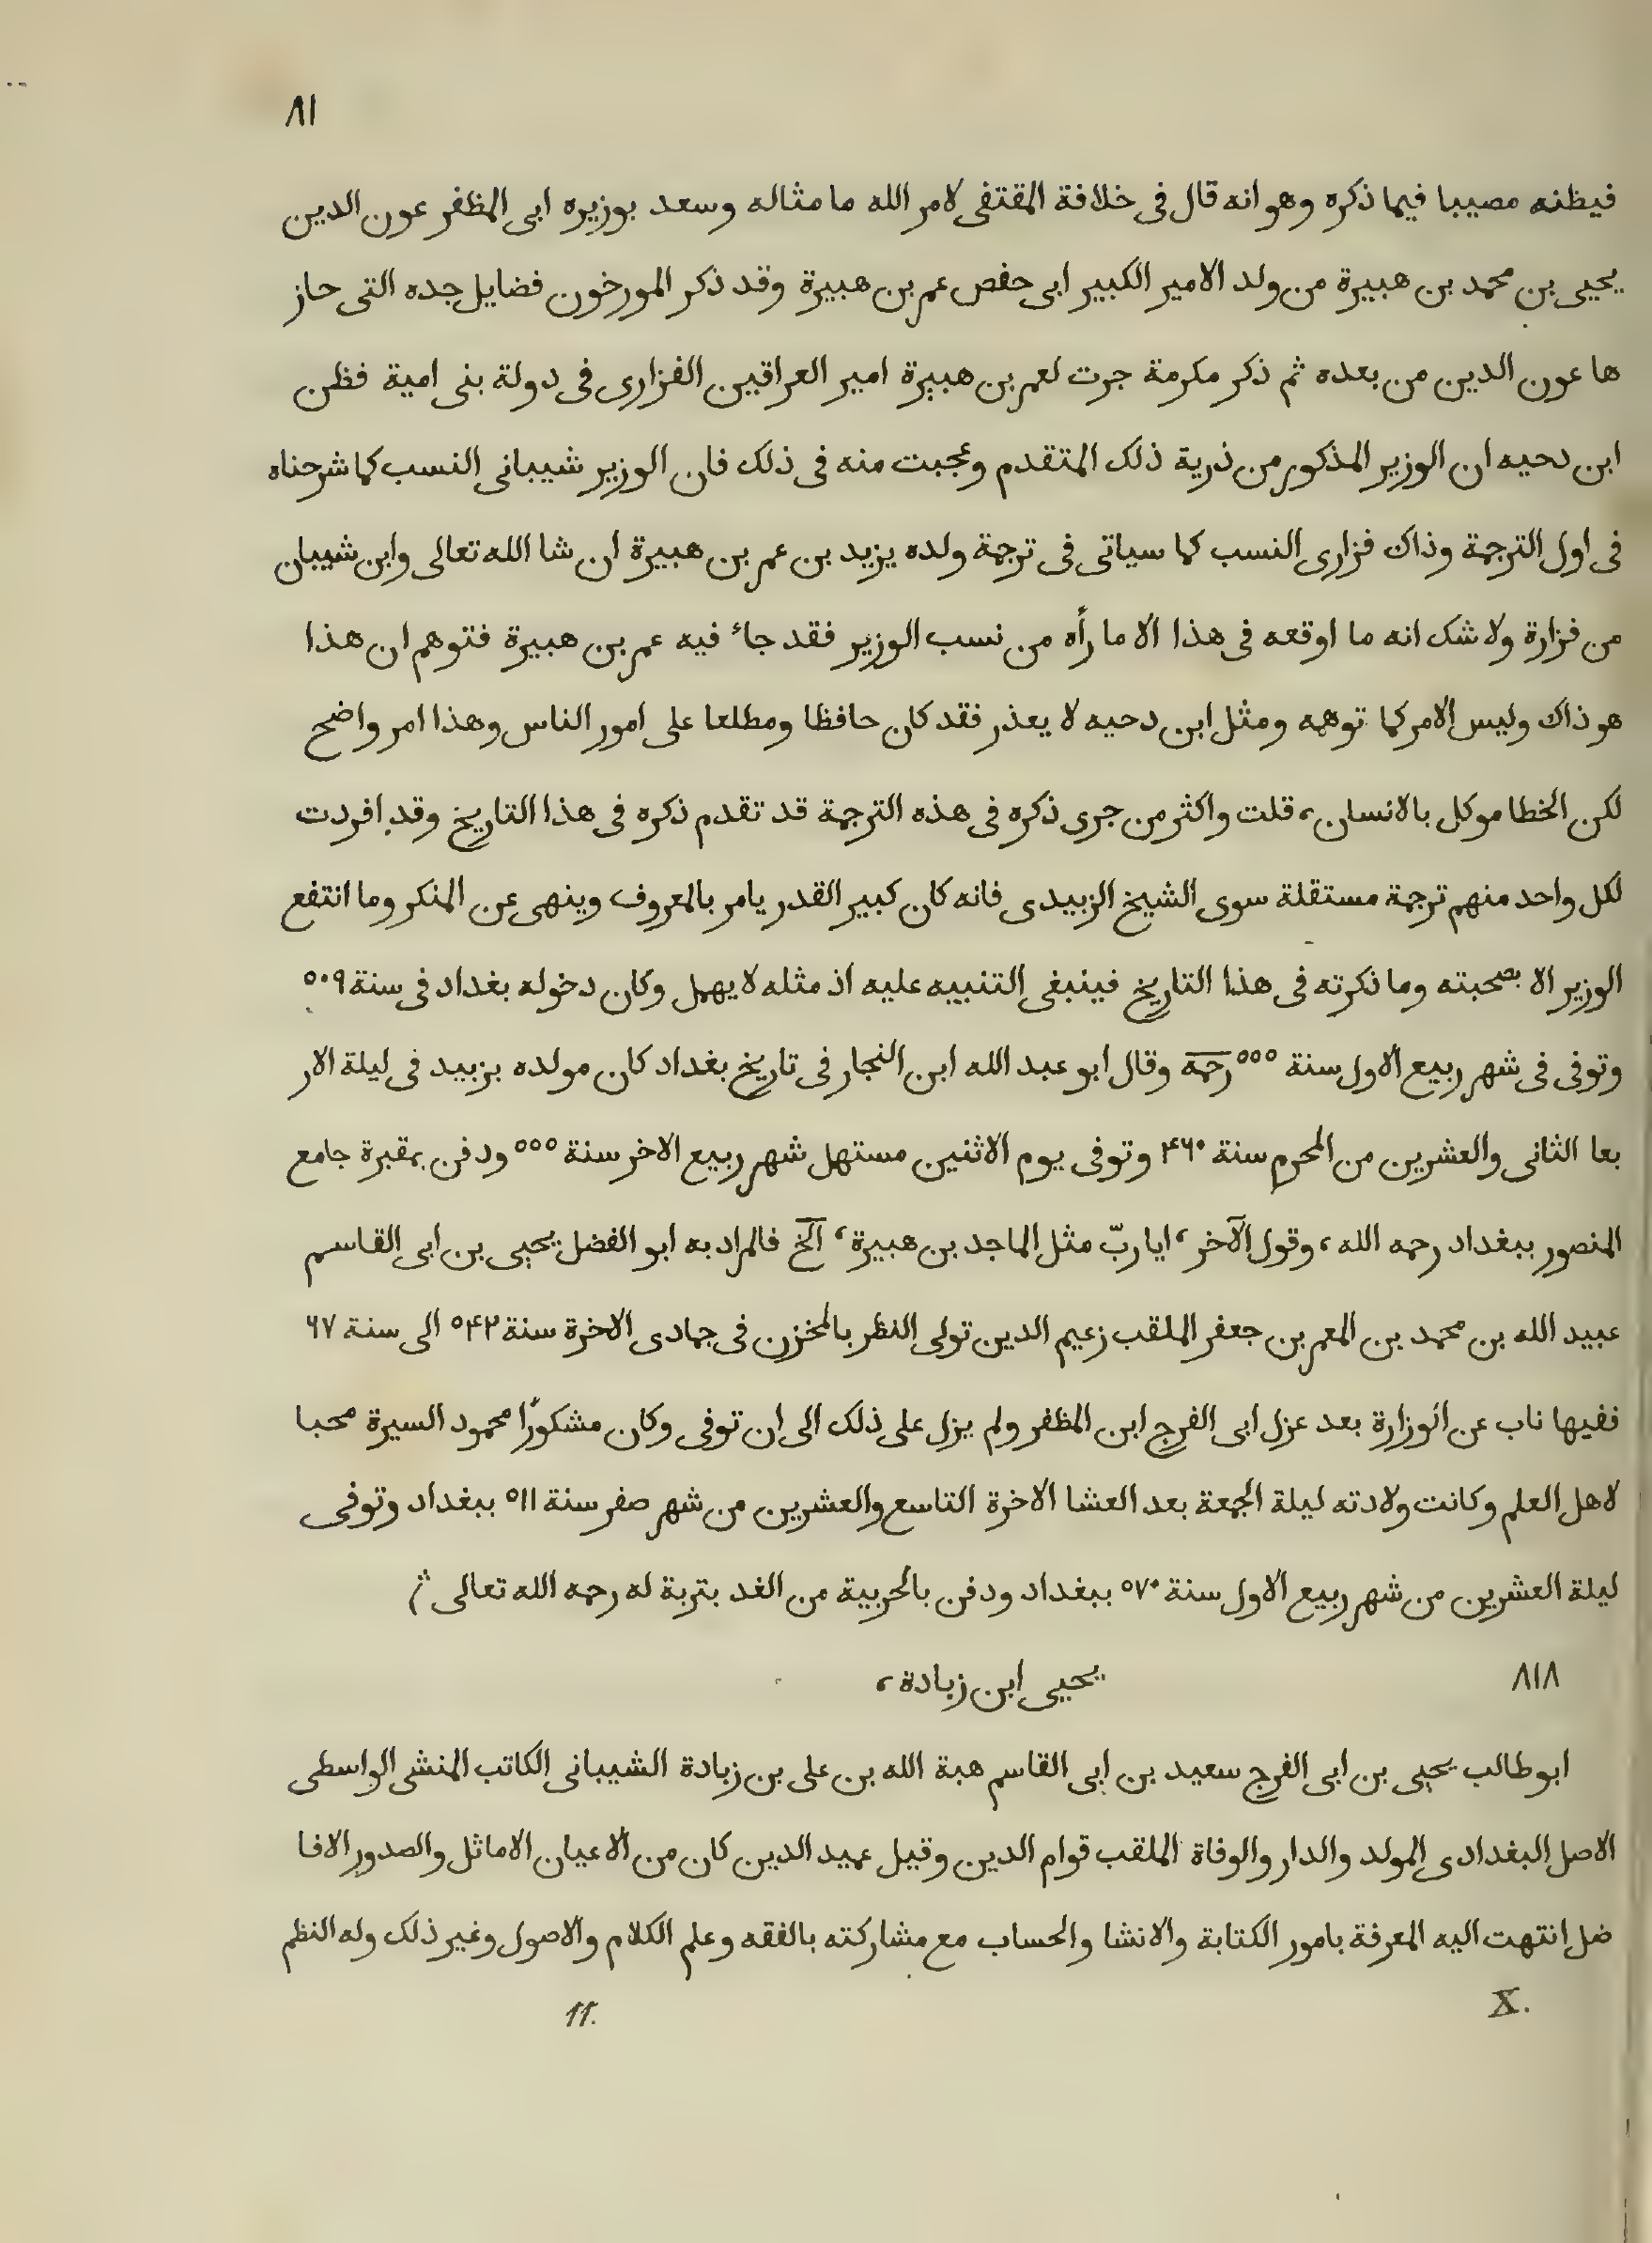 ٨١
فيظنه مصيبا فيما ذكره وهو انه قال فى خلافة المقتفى لامر الله ما مثاله وسعد بوزيره ابى المظفر عون الدين
يحيى بن محمد بن هبيرة من ولد الامير الكبير ابى حفص عمر بن هبيرة وقد ذكر المورخون فضايل جده التى حاز
ها عون الدين من بعده ثم ذكر مكرمة جرت لعمر بن هبيرة امير العراقين الفزارى فى دولة بنى امية فظن
ابن دحيه ان الوزير المذكور من ذرية ذلك المتقدم وعجبت منه فى ذلك فان الوزير شيبانى النسب كما شرحناه
فى اول الترجمة وذاك فزارى النسب كما سياتى فى ترجمة ولده يزيد بن عمر بن هبيرة ان شا الله تعالى واين شيبان
من فزارة ولا شك انه ما اوقعه فى هذا الا ما رأه من نسب الوزير فقد جاء فيه عمر بن هبيرة فتوهم ان هذا
هو ذاك وليس الامر كما توهمه ومثل ابن دحيه لا يعذر فقد كان حافظا ومطلعا على امور الناس وهذا امر واضح
لكن الخطا موكل بالانسان، قلت واكثر من جرى ذكره فى هذه الترجمة قد تقدم ذكره فى هذا التاريخ وقد افردت
لكل واحد منهم ترجمة مستقلة سوى الشيخ الزبيدى فانه كان كبير القدر يامر بالمعروف وينهى عن المنكر وما انتفع
الوزير الا بصحبته وما ذكرته فى هذا التاريخ فينبغى التنبيه عليه اذ مثله لا يهمل وكان دخوله بغداد فى سنة ٥٠٩
وتوفى فى شهر ربيع الاول سنة ٥٥٥ رحمة وقال ابو عبد الله ابن النجار فى تاريخ بغداد كان مولده بزبيد فى ليلة الار
بعا الثانى والعشرين من المحرم سنة ۴٦٠ وتوفى يوم الاثنين مستهل شهر ربيع الاخر سنة ٥٥٥ ودفن بمقبرة جامع
المنصور ببغداد رحمه الله، وقول الآخر، ايا ربّ مثل الماجد بن هبيرة، الخ فالمراد به ابو الفضل يحيى بن ابى القاسم
عبيد الله بن محمد بن المعمر بن جعفر الملقب زعيم الدين تولى النظر بالمخزن فى جمادى الاخرة سنة ٥۴٢ الى سنة ٦٧
ففيها ناب عن الوزارة بعد عزل ابى الفرج ابن المظفر ولم يزل على ذلك الى ان توفى وكان مشكورًا محمود السيرة محبا
لاهل العلم وكانت ولادته ليلة الجمعة بعد العشا الاخرة التاسع والعشرين من شهر صفر سنة ٥١١ ببغداد وتوفى
ليلة العشرين من شهر ربيع الاول سنة ٥٧٠ ببغداد ودفن بالحربية من الغد بتربة له رحمه الله تعالى
٨١٨ يحيى ابن زبادة،
ابو طالب يحيى بن ابى الفرج سعيد بن ابى القاسم هبة الله بن على بن زبادة الشيبانى الكاتب المنشى الواسطى
الاصل البغدادى المولد والدار والوفاة الملقب قوام الدين وقيل عميد الدين كان من الاعيان الاماثل والصدور الافا
ضل انتهت اليه المعرفة بامور الكتابة والانشا والحساب مع مشاركته بالفقه وعلم الكلام والاصول وغير ذلك وله النظم
X. 11.